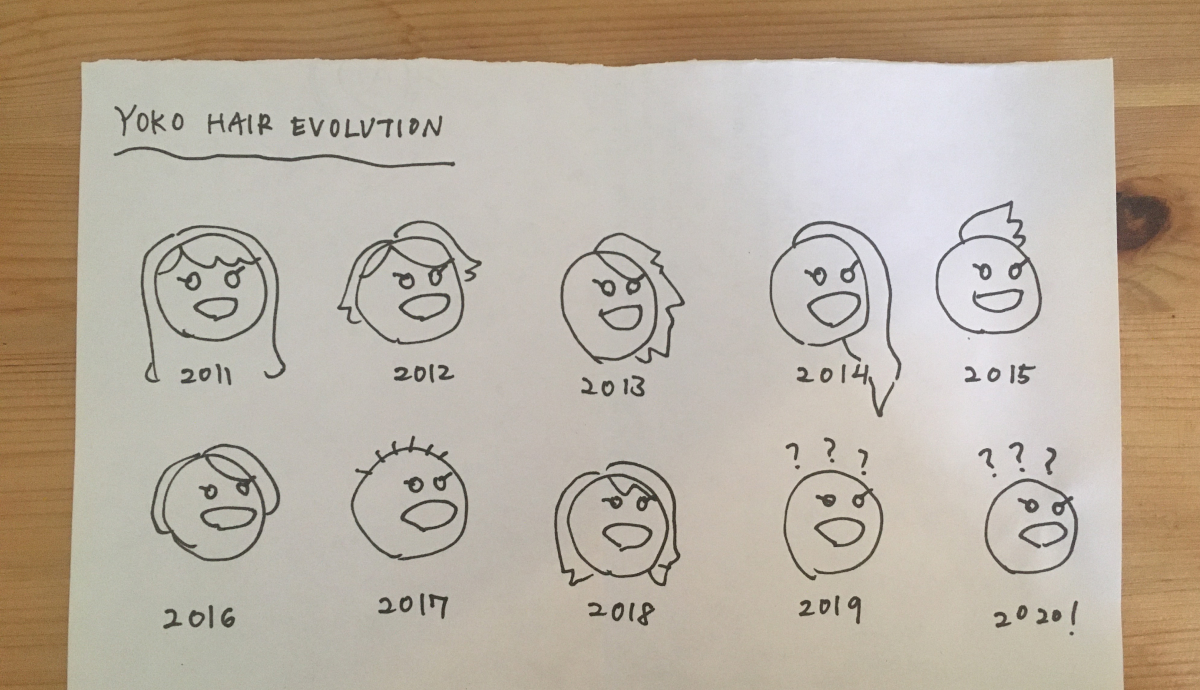 YOKO HAIR EVOLUTION
2011 2012 2013 2014 2015
? ? ? ? ? ?
2016 2017 2018 2019 2020!